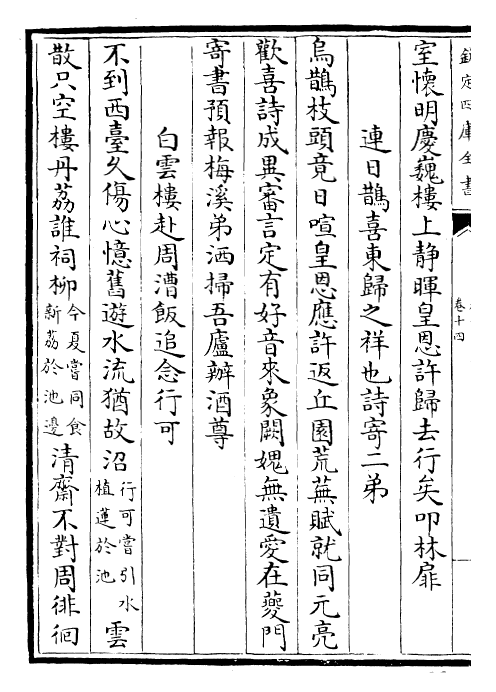 欽定四庫全書
卷十四
室懷明慶巍樓上静暉皇恩許歸去行矣叩林扉
連日鵲喜東歸之祥也詩寄二弟
烏鵲枝頭竟日喧皇恩應許返丘園荒蕪賦就同元亮
歡喜詩成異審言定有好音來象闕媿無遺愛在夔門
寄書預報梅溪弟洒掃吾廬辦酒尊
白雲樓赴周漕飯追念行可
不到西臺久傷心憶舊遊水流猶故沼行可嘗引水植蓮於池雲
散只空樓丹荔誰祠柳今夏嘗同食新荔於池邊清齋不對周徘徊